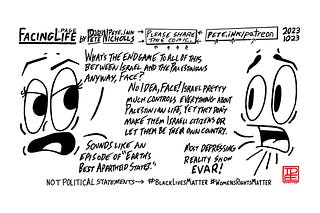 FACING LIFE
PAGE
BY PETE NICHOLS
PETE.INK
PLEASE SHARE
THIS COMIC.
PETE.INK/PATREON
2023
1023
WHAT'S THE ENDGAME TO ALL OF THIS
BETWEEN ISRAEL AND THE PALESTINIANS
ANYWAY, FACE?
NO IDEA, FACE! ISRAEL PRETTY
MUCH CONTROLS EVERYTHING ABOUT
PALESTINIAN LIFE, YET THEY DON'T
MAKE THEM ISRAELI CITIZENS OR
LET THEM BE THEIR OWN COUNTRY.
SOUNDS LIKE AN
EPISODE OF "EARTH'S
BEST APARTHEID STATES."
MOST DEPRESSING
REALITY SHOW
EVAR!
NOT POLITICAL STATEMENTS → #BLACKLIVESMATTER #WOMENSRIGHTSMATTER